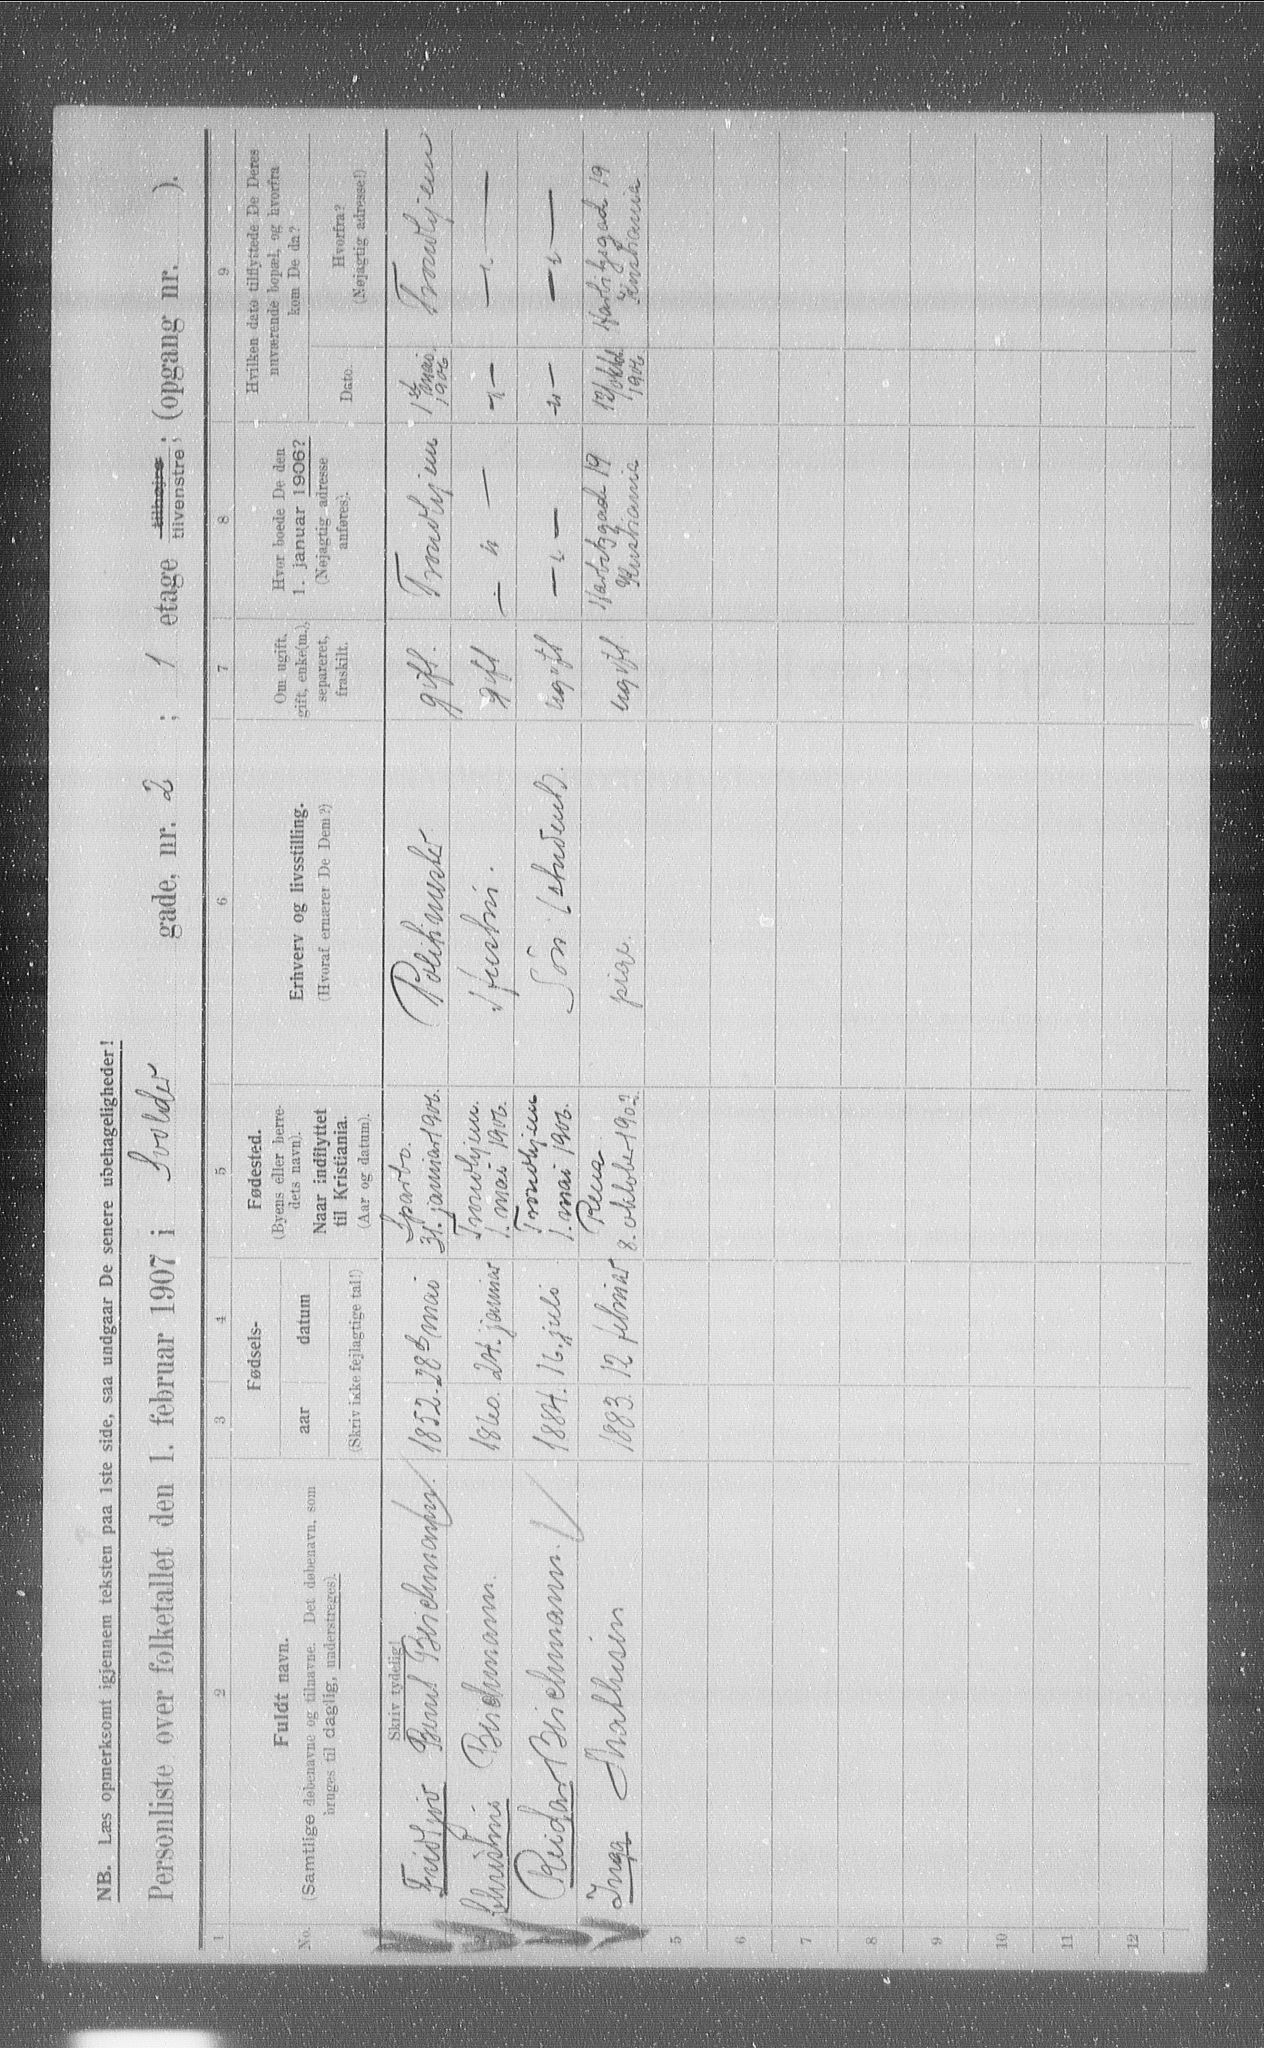 NB. Læs opmerksomt igjennem teksten paa 1ste side, saa undgaar De senere ubehageligheder!
Personliste over folketallet den 1. februar 1907 i Svolder gade, nr. 2 ; 1 etage tilhøjre tilvenstre ; (opgang nr. ).
1 2 3 4 5 6 7 8 9
No.
Fuldt navn.
(Samtlige døbenavne og tilnavne. Det døbenavn, som
bruges til daglig, understreges).
Fødsels-
aar datum
(Skriv ikke fejlagtige tal!)
Fødested.
(Byens eller herre-
dets navn).
Naar indflyttet
til Kristiania.
(Aar og datum).
Erhverv og livsstilling.
(Hvoraf ernærer De Dem?)
Om ugift,
gift, enke(m.),
separeret,
fraskilt.
Hvor boede De den
1. januar 1906?
(Nøjagtig adresse
anføres).
Hvilken dato tilflyttede De Deres
nuværende bopæl, og hvorfra
kom De da?
Dato.
Hvorfra?
(Nøjagtig adresse!)
Skriv tydelig!
Fridtjov Bernt Birchmann 1852 28de mai Sparbo. 31. januar 1906. Politimester gift. Trondhjem 1ste mai 1906 Trondhjem
Christine Birchmann. 1860. 24. januar Trondhjem. 1. mai 1906. Hustru. gift — " — " — — " —
Reidar Birchmann. 1884. 16. juli Trondhjem 1. mai 1906. Søn (student). ugift — " — " — — " —
Inga Mathisen 1883. 12 februar Rena 8. oktober 1902 pige. ugift. Harbitzgade 19 Kristiania 12/okt. 1906 Harbitzgade 19 Kristiania
5
6
7
8
9
10
11
12